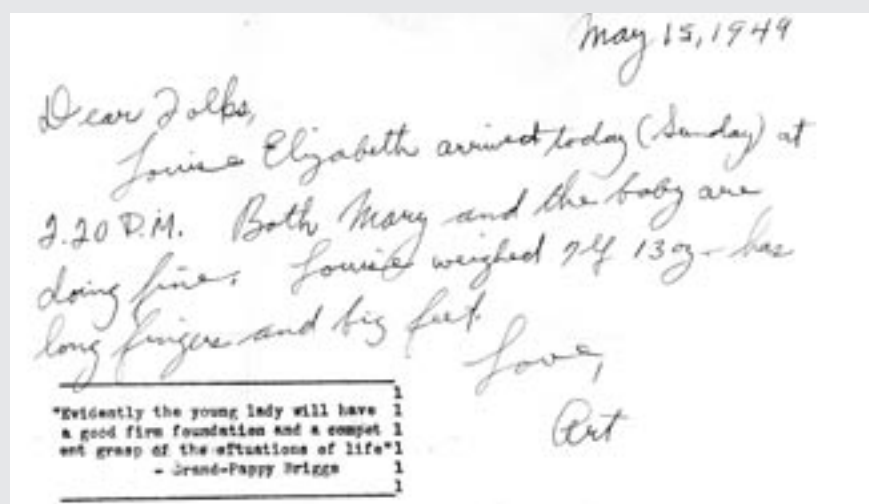 May 15, 1949
Dear Folks,
Louise Elizabeth arrived today (Sunday) at
2.20 P.M. Both Mary and the baby are
doing fine. Louise weighed 7 lb 13 oz - has
long fingers and big feet.
Love,
Art
"Evidently the young lady will have 1
a good firm foundation and a compet 1
ent grasp of the situations of life"1
- Grand-Pappy Briggs 1
1